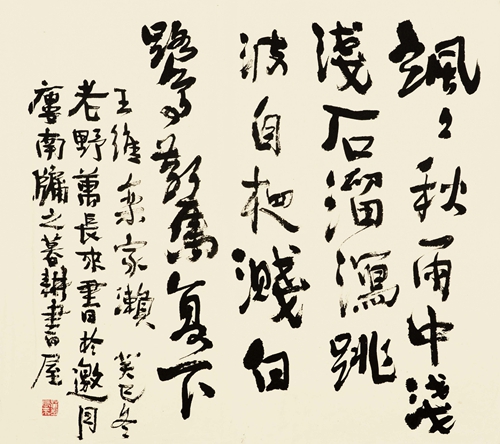 颯〻秋雨中淺
淺石溜瀉跳
波自相濺白
鷺驚复下
王維栾家瀨 癸巳冬
老野萬長來書於邀月
廔南牖之暮耕書屋